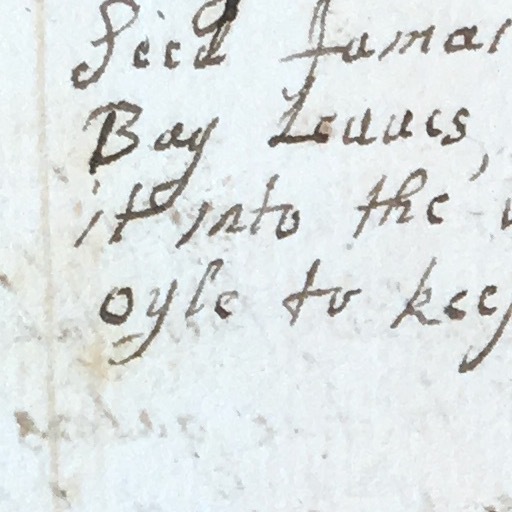 Seed Jamai
Bay Leaues,
it into the
oyle to keep